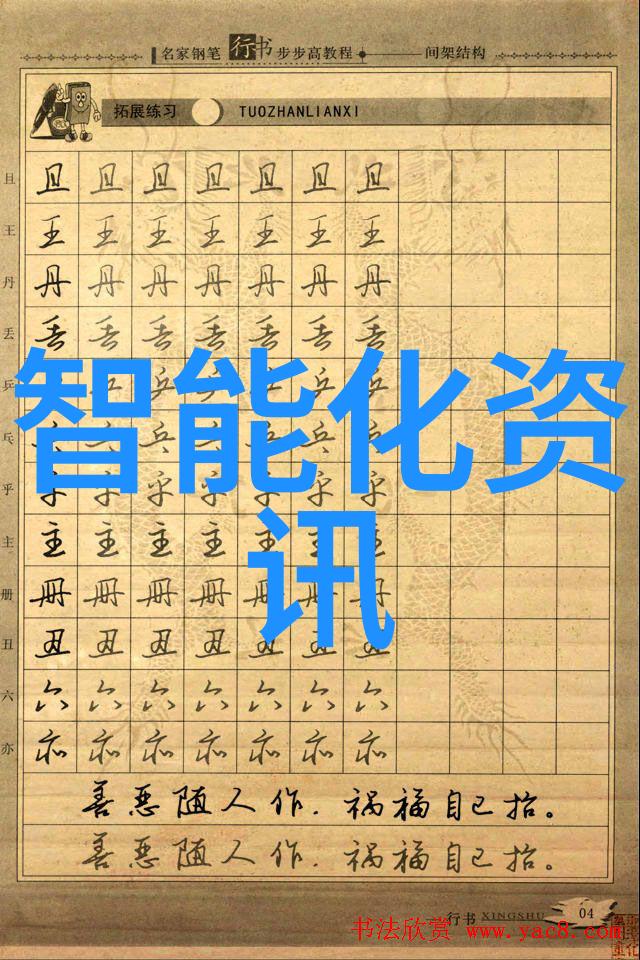 名家钢笔行书步步高教程 间架结构
拓展练习 TUOZHANLIANXI
且 且 且 且 且 且 且 且
王 王 王 王 王 王 王 王
丹 丹 丹 丹 丹 丹 丹 丹
丢 丢 丢 丢 丢 丢 丢 丢
乒 乒 乒 乒
智能化资
乓 乓 乓 乓 乓
乎 乎 乎 乎 乎 乎 乎 乎
主 主 主 主 主 主 主 主
讯
册 册 册 册 册 册 册 册
丑 丑 丑 丑 丑 丑 丑 丑
六 六 六 六 六 六 六 六
亦 亦 亦 亦 亦 亦 亦 亦
善恶随人作，祸福自己招。
善恶随人作，祸福自己招。
行书 XINGSHU 04
书法欣赏 www.yac8.com